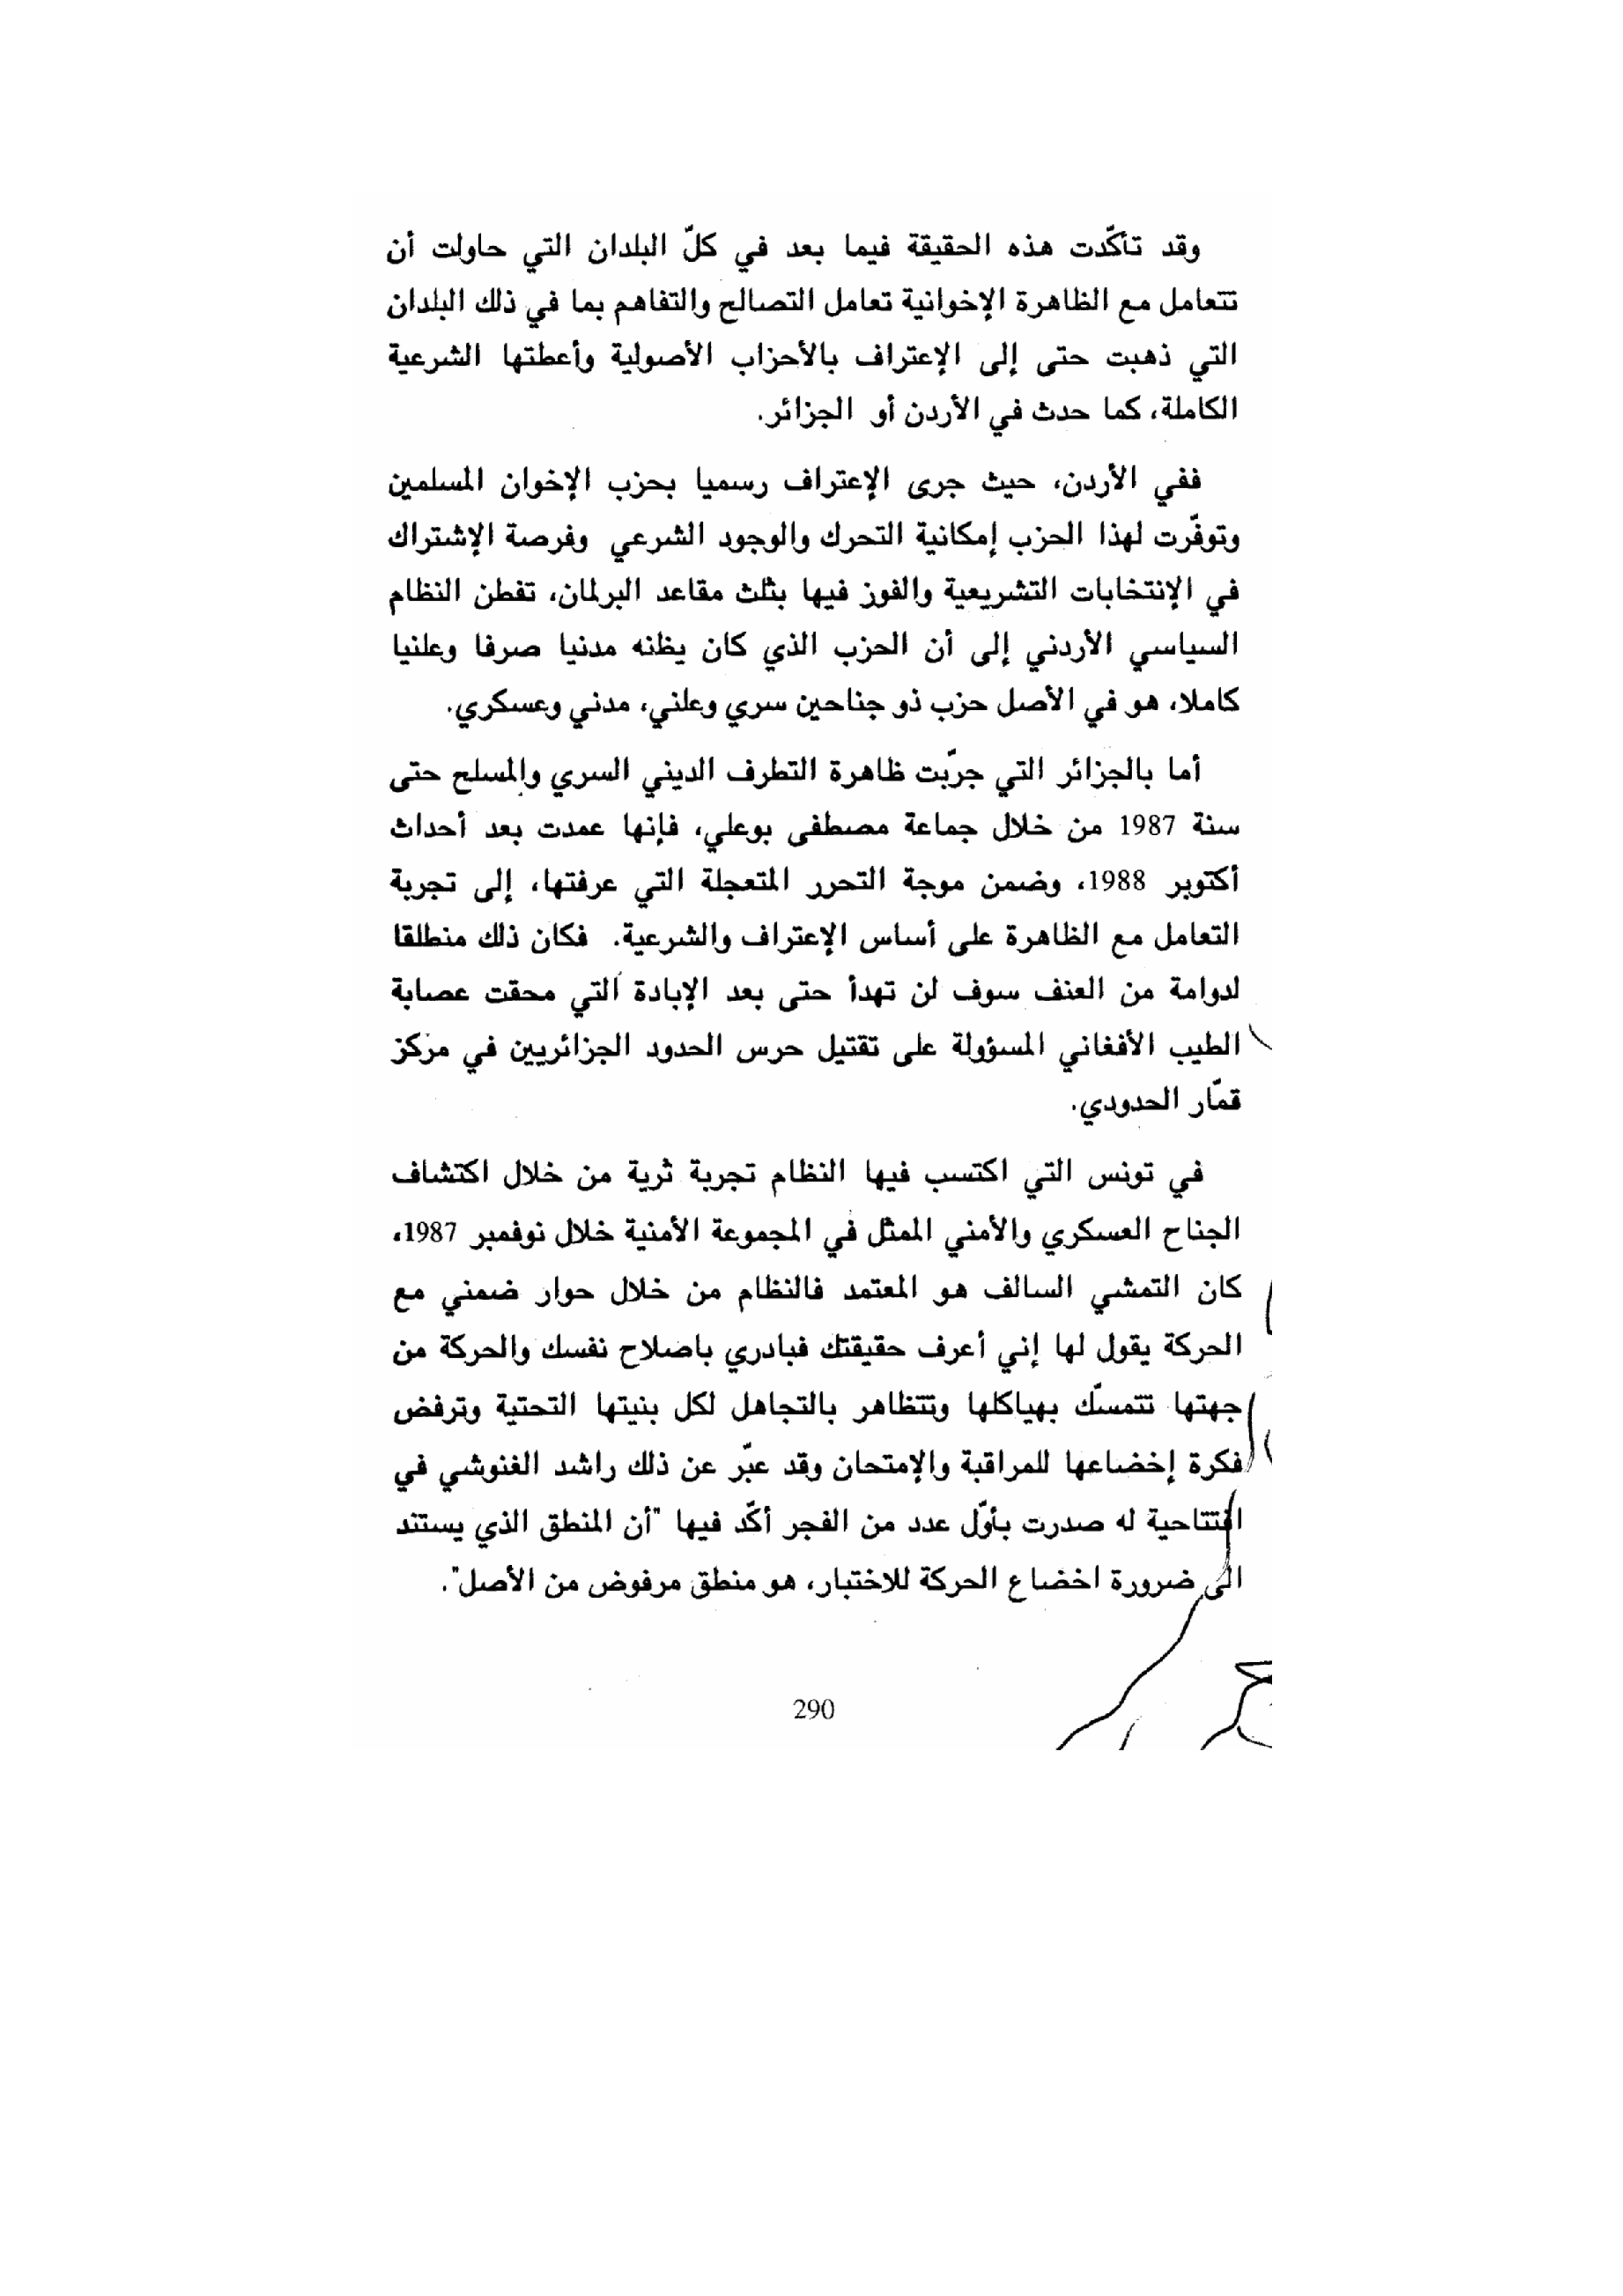 وقد تأكّدت هذه الحقيقة فيما بعد في كلّ البلدان التي حاولت أن
تتعامل مع الظاهرة الإخوانية تعامل التصالح والتفاهم بما في ذلك البلدان
التي ذهبت حتى إلى الإعتراف بالأحزاب الأصولية وأعطتها الشرعية
الكاملة، كما حدث في الأردن أو الجزائر.
ففي الأردن، حيث جرى الإعتراف رسميا بحزب الإخوان المسلمين
وتوفّرت لهذا الحزب إمكانية التحرك والوجود الشرعي وفرصة الإشتراك
في الإنتخابات التشريعية والفوز فيها بثلث مقاعد البرلمان، تفطن النظام
السياسي الأردني إلى أن الحزب الذي كان يظنه مدنيا صرفا وعلنيا
كاملا، هو في الأصل حزب ذو جناحين سري وعلني، مدني وعسكري.
أما بالجزائر التي جرّبت ظاهرة التطرف الديني السري والمسلح حتى
سنة 1987 من خلال جماعة مصطفى بوعلي، فإنها عمدت بعد أحداث
أكتوبر 1988، وضمن موجة التحرر المتعجلة التي عرفتها، إلى تجربة
التعامل مع الظاهرة على أساس الإعتراف والشرعية. فكان ذلك منطلقا
لدوامة من العنف سوف لن تهدأ حتى بعد الإبادة التي محقت عصابة
الطيب الأفغاني المسؤولة على تقتيل حرس الحدود الجزائريين في مركز
قمّار الحدودي.
في تونس التي اكتسب فيها النظام تجربة ثرية من خلال اكتشاف
الجناح العسكري والأمني الممثل في المجموعة الأمنية خلال نوفمبر 1987،
كان التمشي السالف هو المعتمد فالنظام من خلال حوار ضمني مع
الحركة يقول لها إني أعرف حقيقتك فبادري باصلاح نفسك والحركة من
جهتها تتمسّك بهياكلها وتتظاهر بالتجاهل لكل بنيتها التحتية وترفض
فكرة إخضاعها للمراقبة والإمتحان وقد عبّر عن ذلك راشد الغنوشي في
افتتاحية له صدرت بأوّل عدد من الفجر أكّد فيها "أن المنطق الذي يستند
الى ضرورة اخضاع الحركة للاختبار، هو منطق مرفوض من الأصل".
290